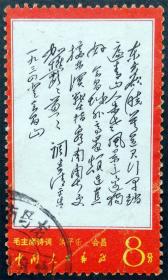 东方欲晓莫道君行早踏
遍青山人未老风景这边独
好会昌城外高峰颠连直
接东溟战士指看南粤更
加郁郁葱葱
调寄清平乐
一九三四年
毛主席诗词 清平乐 会昌
中国人民邮政
8分